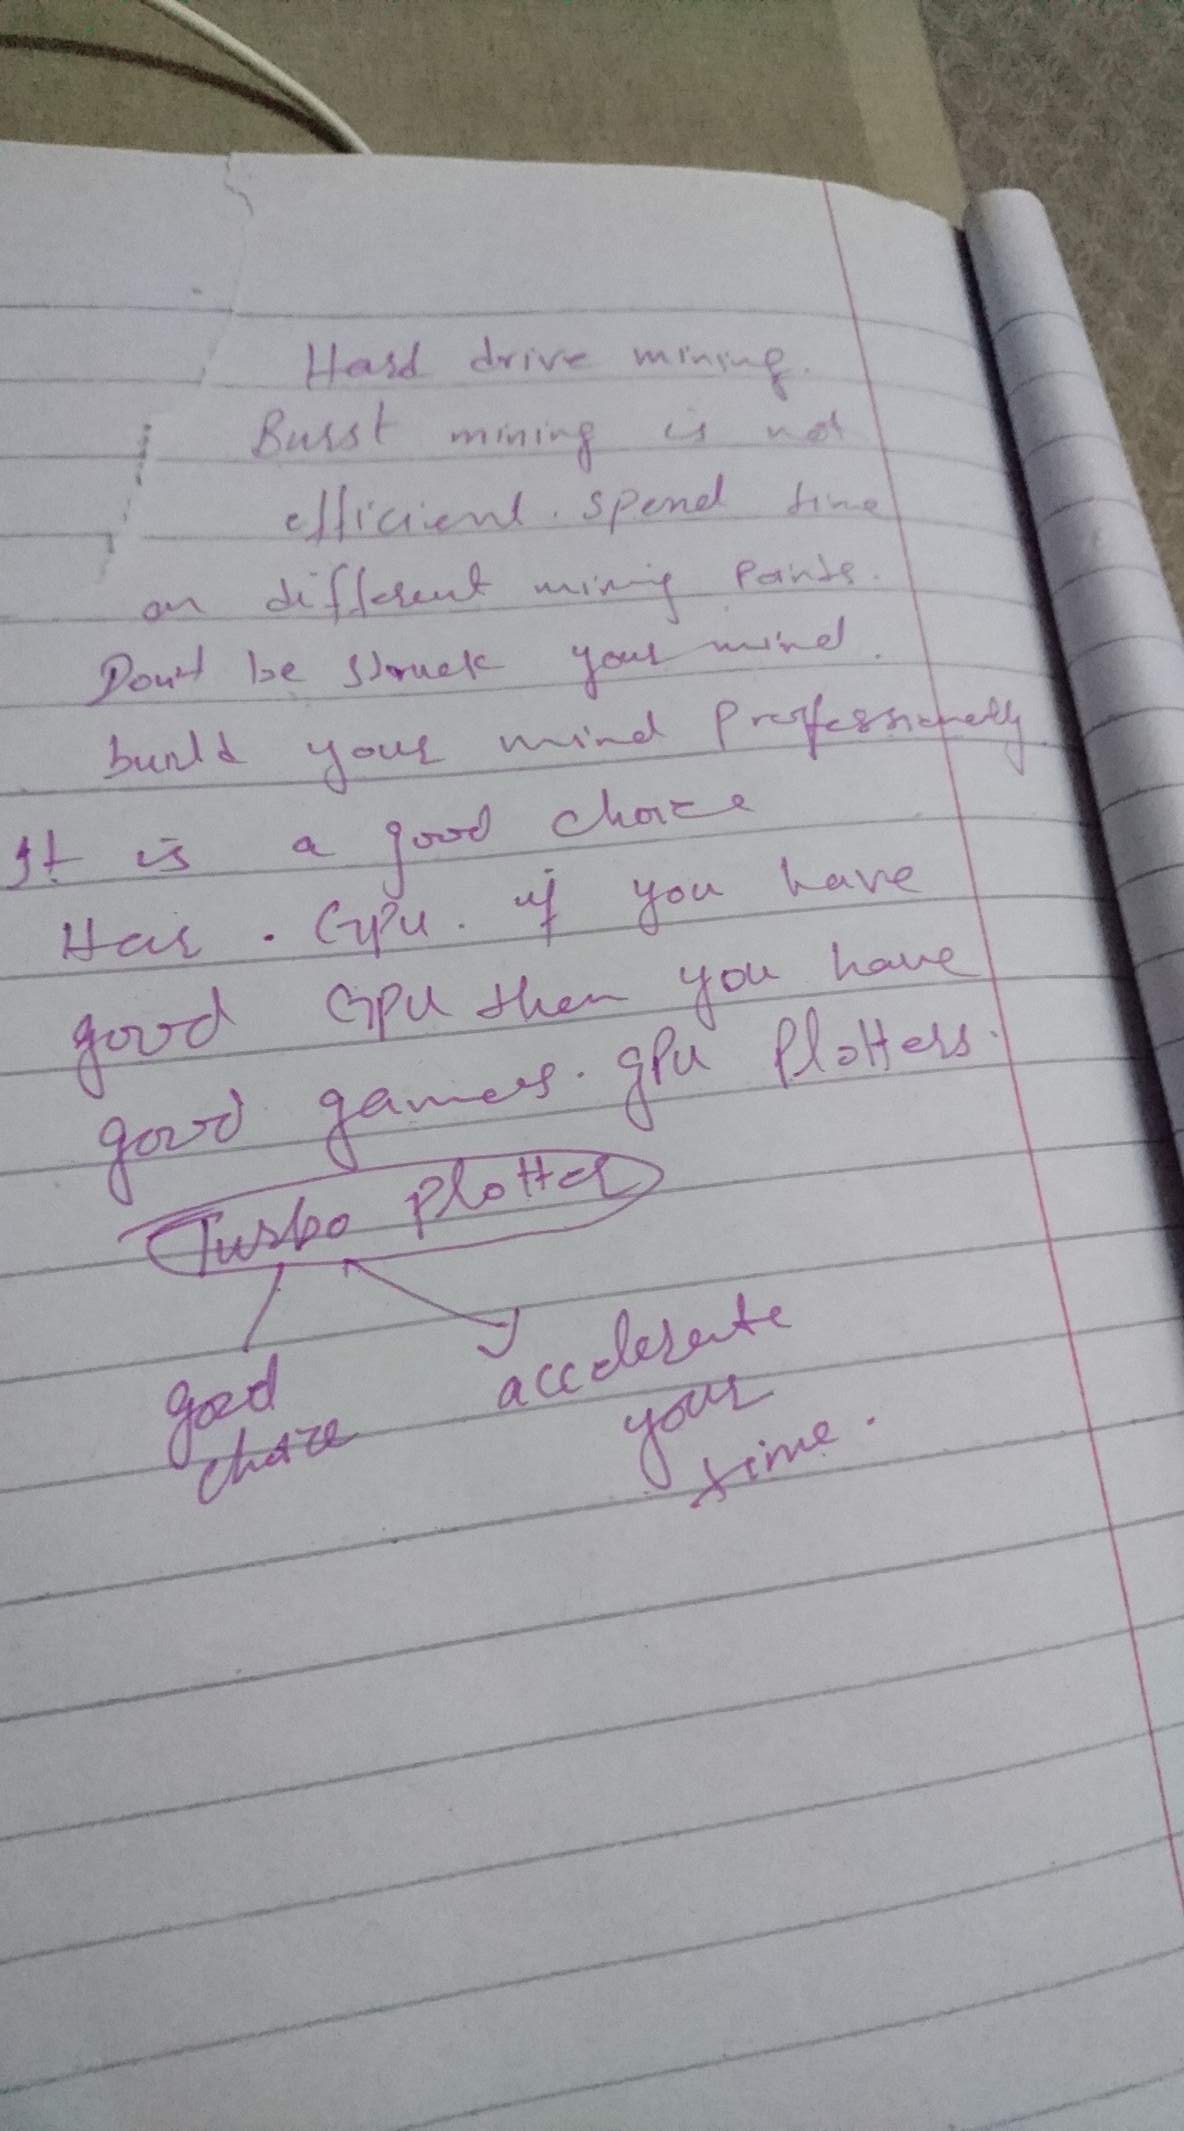 Hard drive mining.
Burst mining is not
efficient. spend time
on different mining Points.
Don't be struck your mind.
build your mind Professionally.
It is a good choice
Has . GPU . if you have
good GPU then you have
good games. gPU Plotters.
Turbo Plotter
good accelerate
choice your
time.